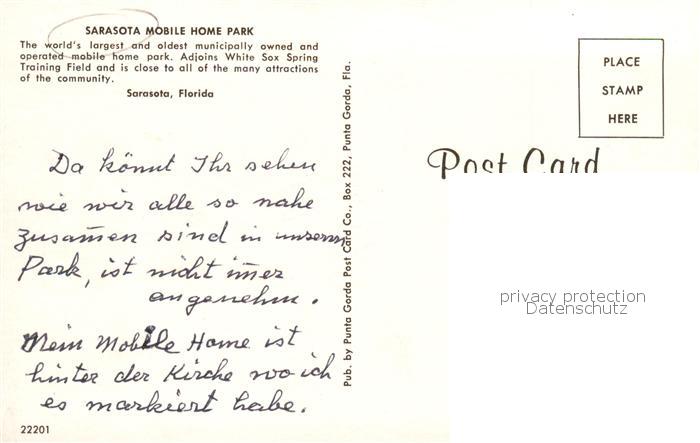 SARASOTA MOBILE HOME PARK
The world's largest and oldest municipally owned and
operated mobile home park. Adjoins White Sox Spring
Training Field and is close to all of the many attractions
of the community.
Sarasota, Florida
Da könnt Ihr sehen
wie wir alle so nahe
zusam̅en sind in unserm
Park, ist nicht im̅er
angenehm.
Mein Mobile Home ist
hinter der Kirche wo ich
es markiert habe.
22201
Pub. by Punta Gorda Post Card Co., Box 222, Punta Gorda, Fla.
PLACE
STAMP
HERE
Post Card
privacy protection
Datenschutz